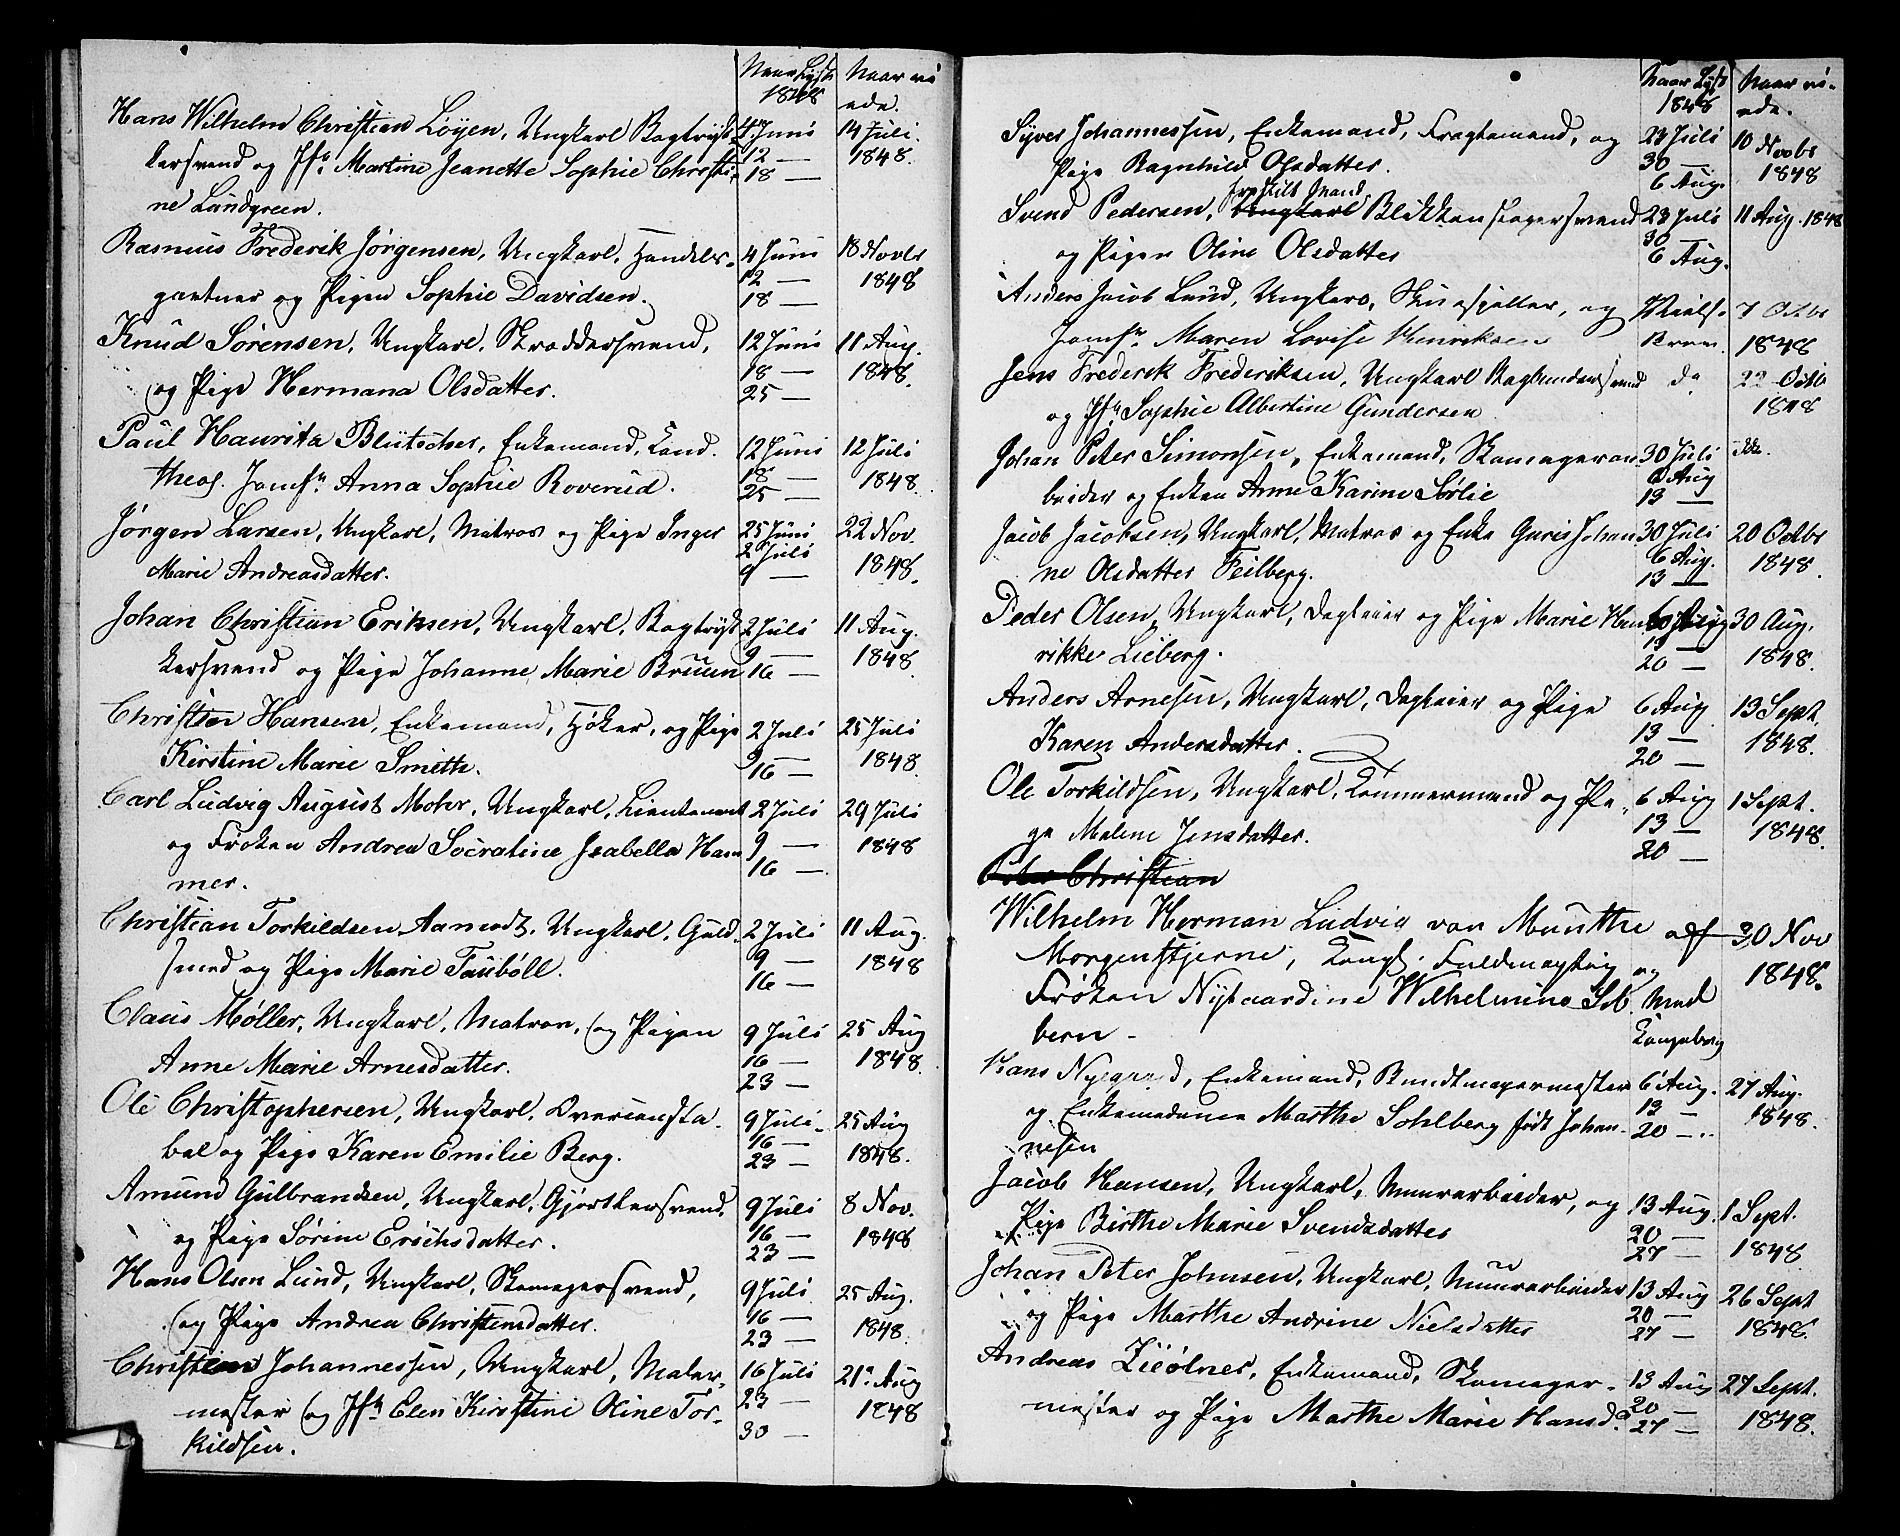 Naar Lyst Naar vi-
1848 ede.
Hans Wilhelm Christian Löyen, Ungkarl Bogtryk- 4 Juni 14 Juli
kersvend og Jfr. Martine Jeanette Sophie Christi- 12 — 1848.
ne Lundgreen. 18 —
Rasmus Frederik Jörgensen, Ungkarl, Handels- 4 Juni 18 Novbr
gartner og Pigen Sophie Davidsen. 12 — 1848
18 —
Knud Sörensen, Ungkarl, Skræddersvend, 12 Juni 11 Aug.
og Pige Hermana Olsdatter. 18 — 1848.
25 —
Paul Hauritz Blütscher, Enkemand, Cand. 12 Juni 12 Juli
theol. Jomfr. Anna Sophie Roverud. 18 — 1848.
25 —
Jörgen Larsen, Ungkarl, Matros og Pige Inger 25 Juni 22 Nov.
Marie Andreasdatter. 2 Juli 1848.
9 —
Johan Christian Eriksen, Ungkarl, Bogtryk 2 Juli 11 Aug.
kersvend og Pige Johanne Marie Bruun 9 — 1848.
16 —
Christian Hansen, Enkemand, Höker, og Pige 2 Juli 25 Juli
Kirstine Marie Smith. 9 — 1848.
16 —
Carl Ludvig August Mohr, Ungkarl, Lieutenant 2 Juli 29 Juli
og Fröken Andrea Socratine Isabella Ham 9 — 1848
mer. 16 —
Christian Torkildsen Aamodt, Ungkarl, Guld- 2 Juli 11 Aug.
smed og Pige Marie Tauböll. 9 — 1848
16 —
Claus Möller, Ungkarl, Matros, og Pigen 9 Juli 25 Aug
Anne Marie Arnesdatter. 16 — 1848.
23 —
Ole Christophersen, Ungkarl, Overconsta- 9 Juli 25 Aug
bel og Pige Karen Emilie Berg. 16 — 1848.
23 —
Amund Gulbrandsen, Ungkarl, Gjörtlersvend, 9 Juli 8 Nov.
og Pige Sörine Erichsdatter. 16 — 1848
23 —
Hans Olsen Lund, Ungkarl, Skomagersvend, 9 Juli 25 Aug.
og Pige Andrea Christensdatter. 16 — 1848.
23 —
Christian Johannessen, Ungkarl, Maler- 16 Juli 21 Aug
mester og Jfr. Elen Kirstine Oline Tor- 23 — 1848
kildsen. 30 —
Naar Lyst Naar vi-
1848 ede.
Syver Johannessen, Enkemand, Fragtemand, og 23 Juli 10 Novbr
Pige Ragnhild Olsdatter. 30 — 1848
6 Aug.
fraskilt Mand
Svend Pedersen, Ungkarl Blikkenslagersvend 23 Juli 11 Aug. 1848
og Pigen Oline Olsdatter 30
6 Aug.
Anders Jacob Lund, Ungkarl, Skuespiller, og 7 Octbr
Jomfr. Maren Lovise Henriksen 1848
Jens Frederik Frederiksen, Ungkarl Bogbindersvend do 22 Octb
og Jfr. Sophie Albertine Gundersen 1848
Johan Peter Simonsen, Enkemand, Skomagerar 30 Juli ikke.
beider og Enken Anne Karine Sörlie 6 Aug
13 —
Jacob Jacobsen, Ungkarl, Matros og Enke Guris Johan 30 Juli 20 Octbr
ne Olsdatter Feilberg. 6 Aug. 1848.
13 —
Peder Olsen, Ungkarl, Dagleier og Pige Marie Hen 6 Aug 30 Aug.
rikke Lieberg. 13 — 1848.
20 —
Anders Arnesen, Ungkarl, Dagleier og Pige 6 Aug 13 Sept.
Karen Andersdatter. 13 — 1848.
20 —
Ole Torkildsen, Ungkarl, Tömmermand og Pi- 6 Aug 1 Sept.
ge Malene Jensdatter. 13 — 1848.
20 —
Christian
Wilhelm Herman Ludvig von Munthe af 30 Nov
Morgenstjerne, Kongl. Fuldmægtig og 1848.
Fröken Nygaardine Wilhelmine Sib
bern - Kongsberg
Hans Nygaard, Enkemand, Bundtmagermester 6 Aug. 27 Aug.
og Enkemadame Marthe Sohlberg födt Johan- 13 — 1848.
nesen 20 —
Jacob Hansen, Ungkarl, Murarbeider, og 13 Aug. 1 Sept.
Pige Birthe Marie Svendsdatter 20 — 1848.
27 —
Johan Peter Johnsen, Ungkarl, Murarbeider 13 Aug 26 Sept
og Pige Marthe Andrine Nielsdatter 20 — 1848.
27 —
Andreas Ziölner, Enkemand, Skomager- 13 Aug 27 Sept.
mester og Pige Marthe Marie Hansd. 20 — 1848.
27 —